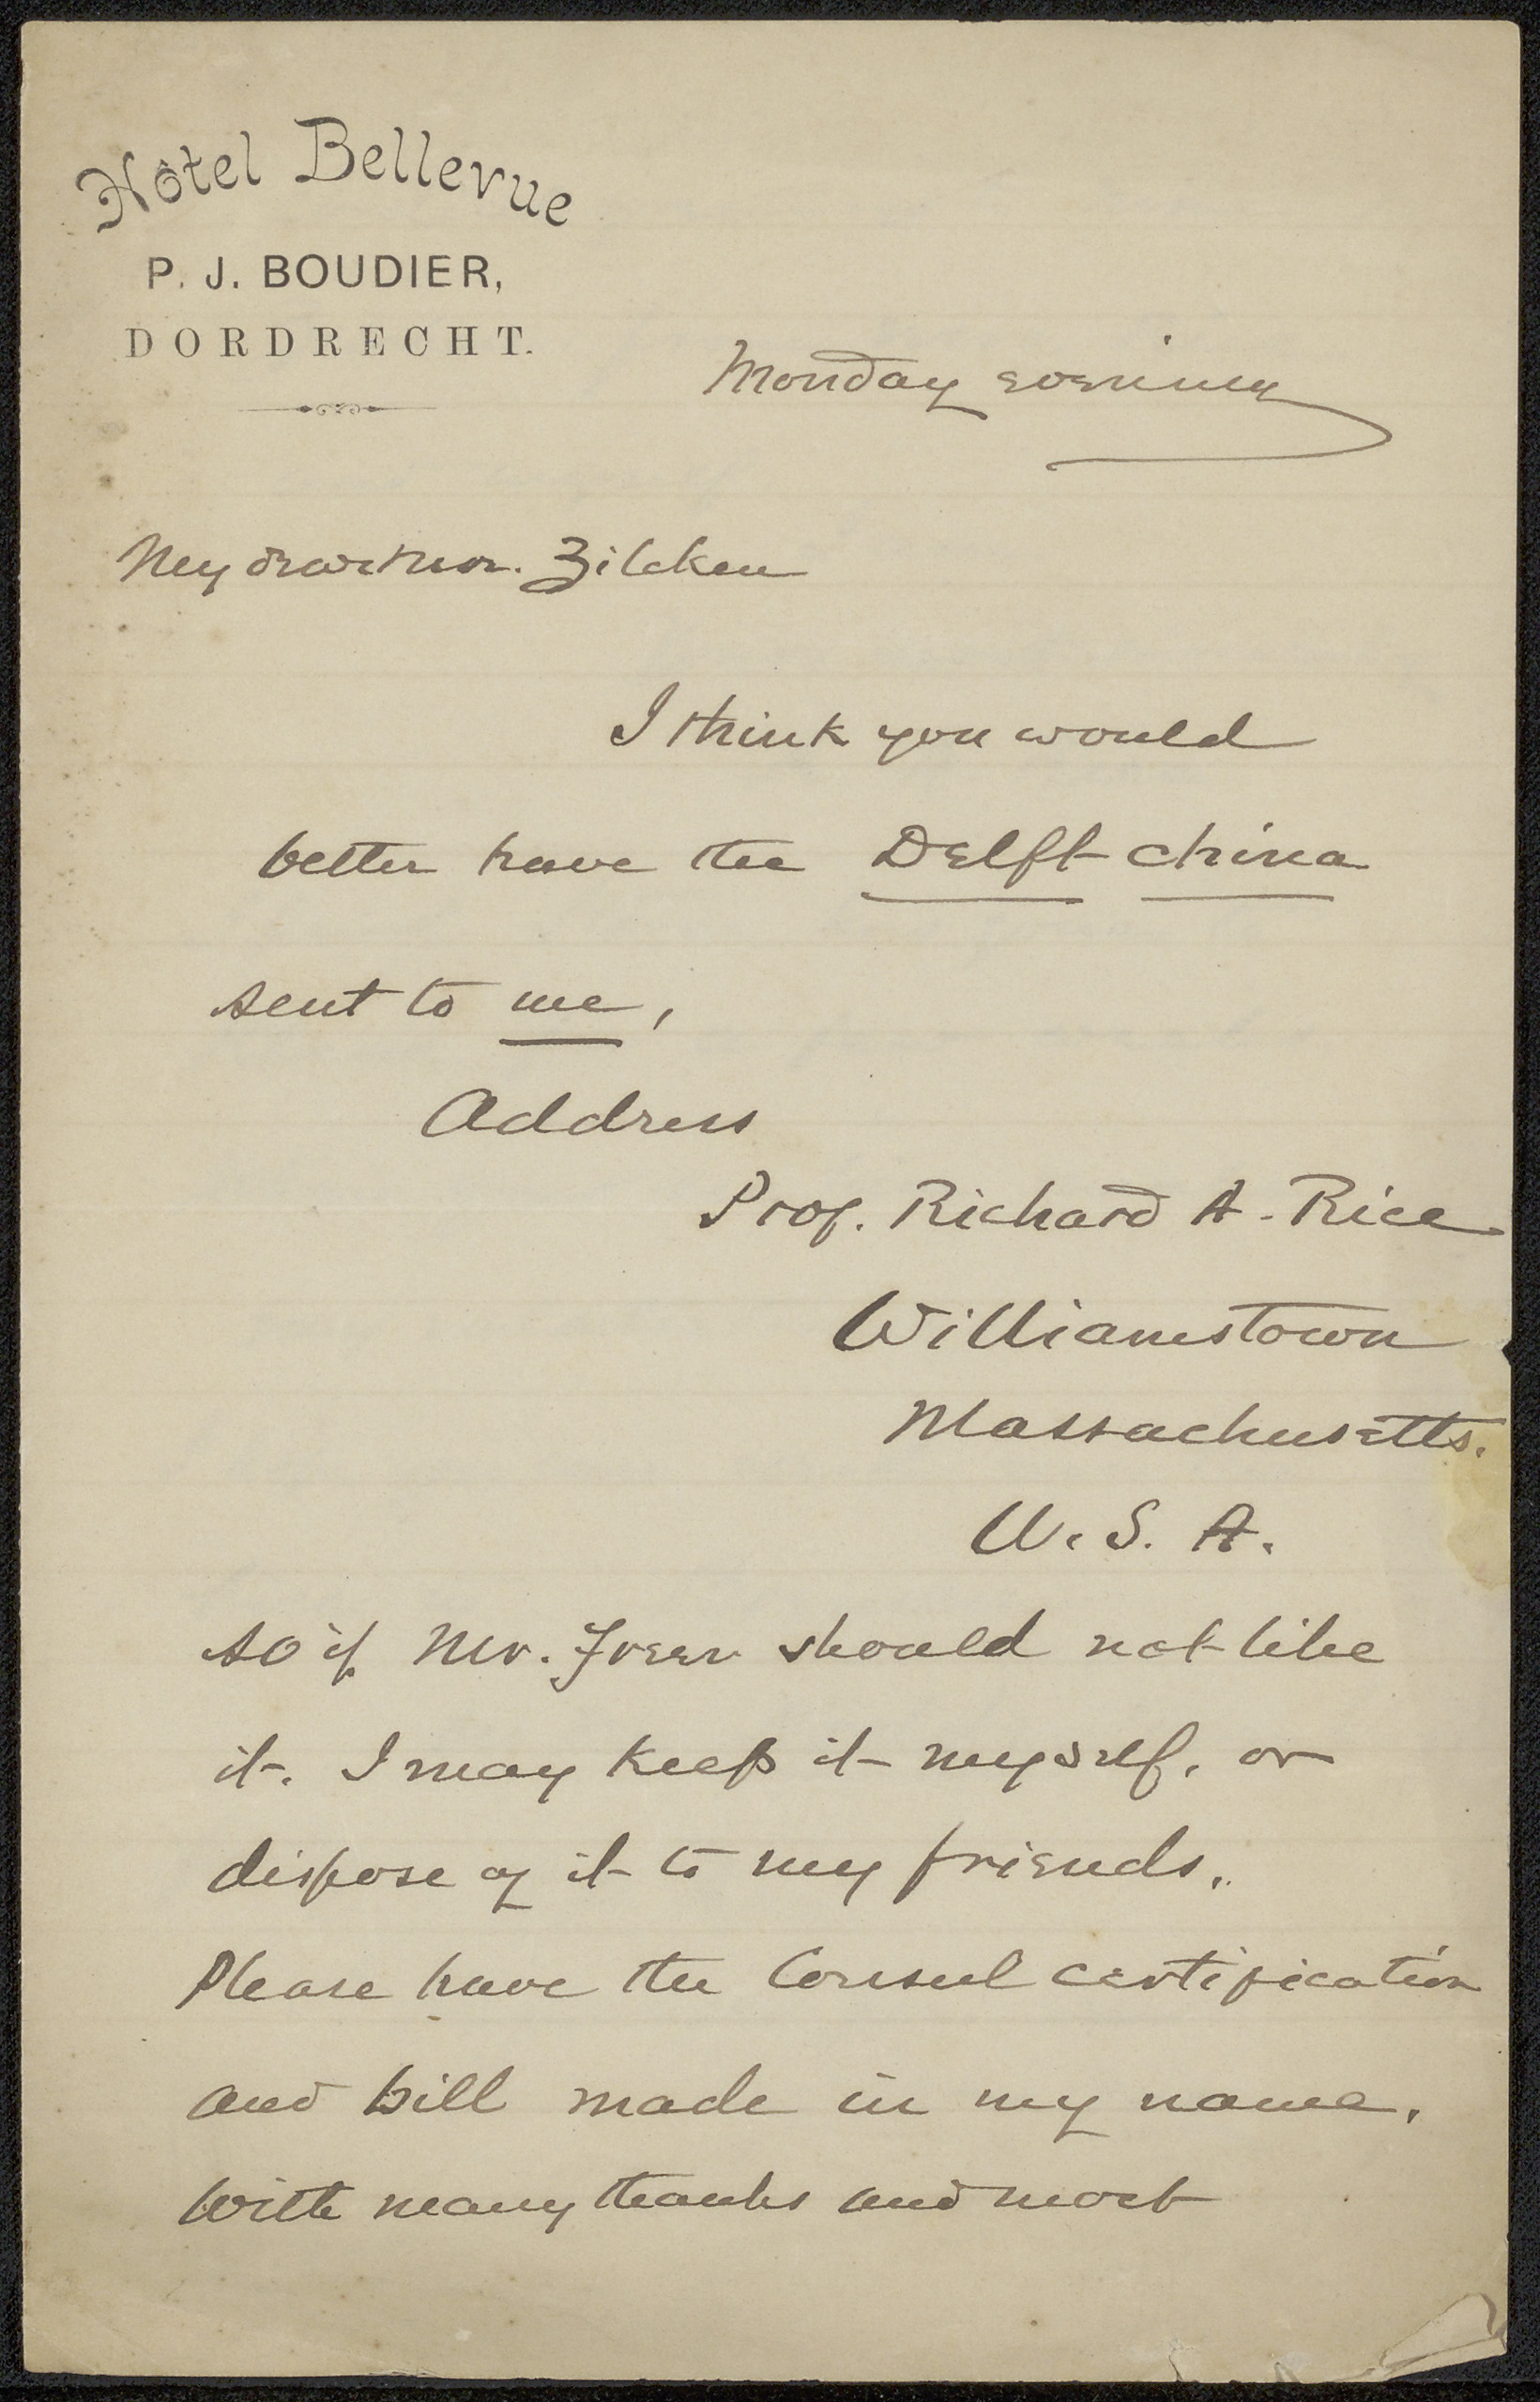 Hôtel Bellevue
P. J. BOUDIER,
DORDRECHT.
Monday evening
My dear Mr. Zilcken
I think you would
better have the Delft china
sent to me,
Address
Prof. Richard A. Rice
Williamstown
Massachusetts.
U. S. A.
so if Mr. Freer should not like
it. I may keep it myself, or
dispose of it to my friends.
Please have the Consul certification
and bill made in my name.
With many thanks and most